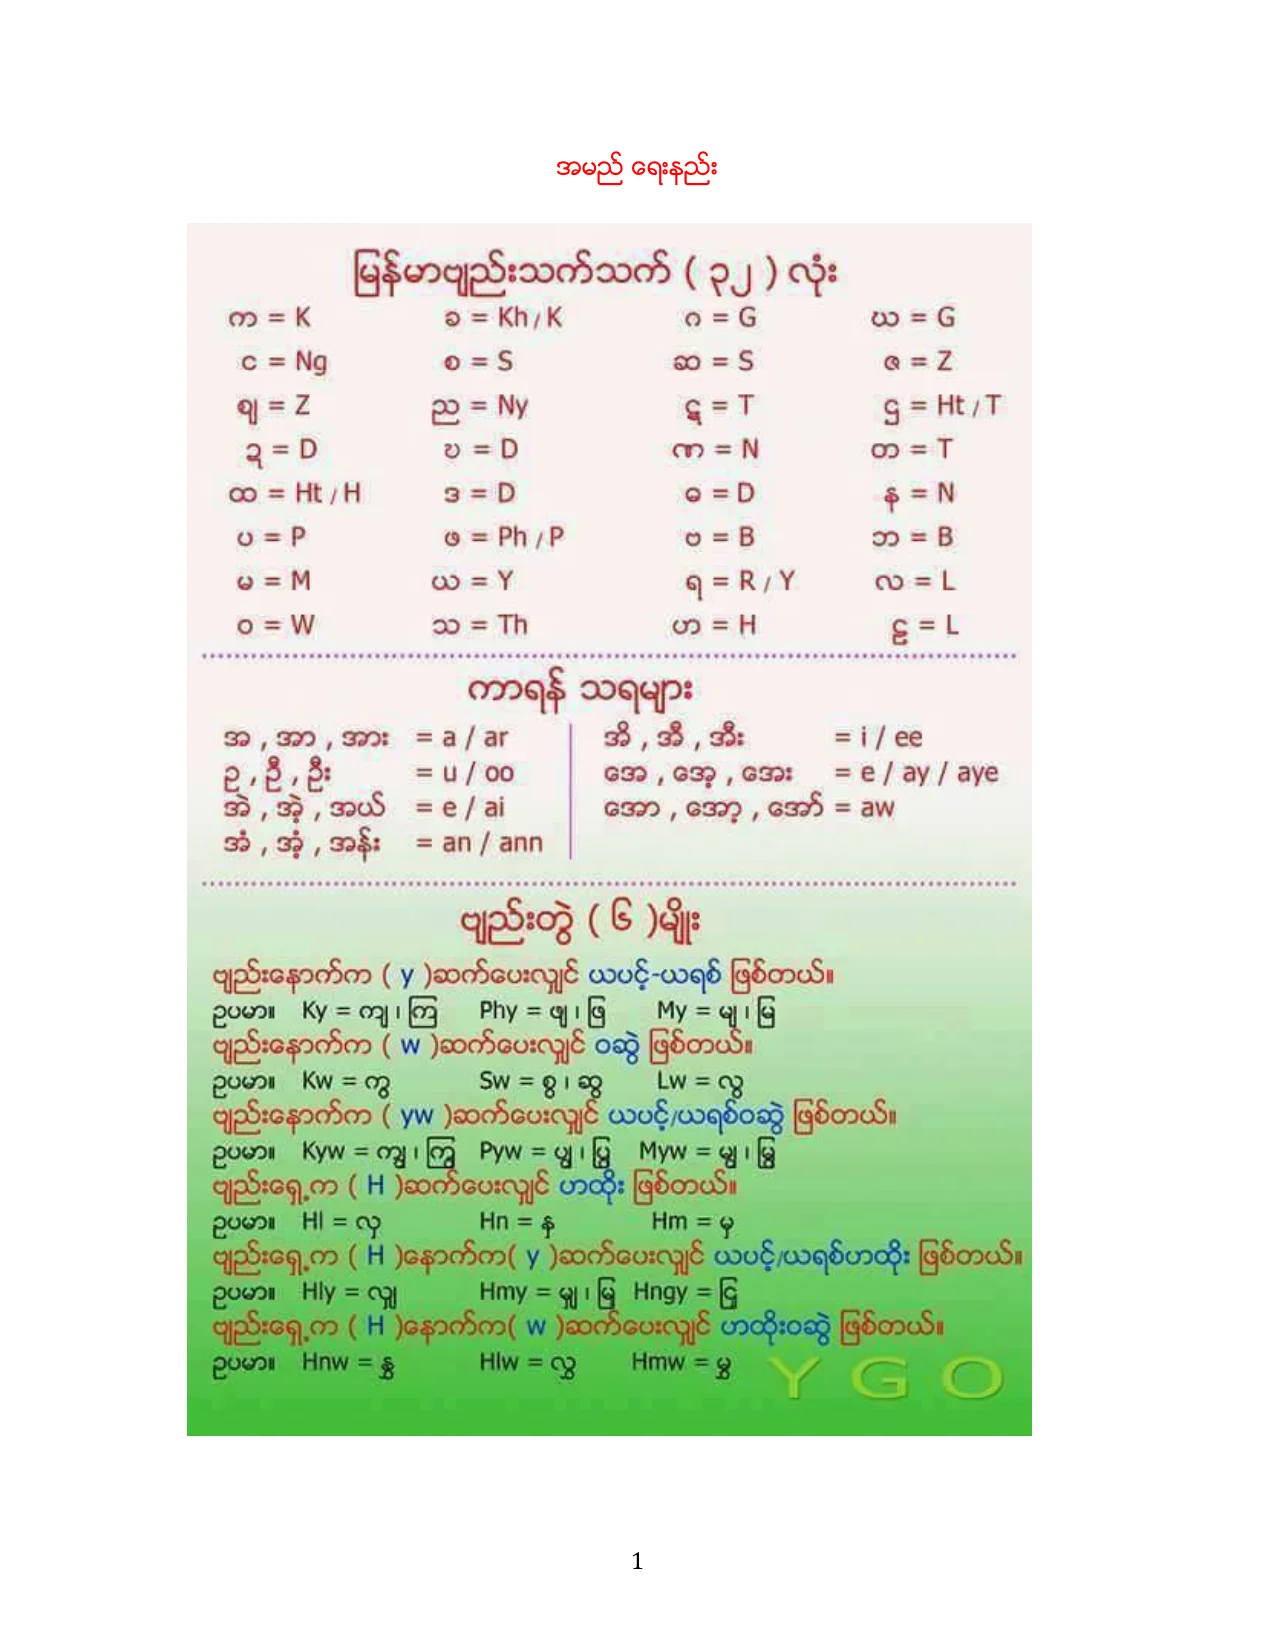 အမည် ရေးနည်း
မြန်မာဗျည်းသက်သက် ( ၃၂ ) လုံး
က = K ခ = Kh / K ဂ = G ဃ = G
င = Ng စ = S ဆ = S ဇ = Z
ဈ = Z ည = Ny ဋ = T ဌ = Ht / T
ဍ = D ဎ = D ဏ = N တ = T
ထ = Ht / H ဒ = D ဓ = D န = N
ပ = P ဖ = Ph / P ဗ = B ဘ = B
မ = M ယ = Y ရ = R / Y လ = L
ဝ = W သ = Th ဟ = H ဠ = L
ကာရန် သရများ
အ , အာ , အား = a / ar အိ , အီ , အီး = i / ee
ဥ , ဦ , ဦး = u / oo အေ , အေ့ , အေး = e / ay / aye
အဲ , အဲ့ , အယ် = e / ai အော , အော့ , အော် = aw
အံ , အံ့ , အန်း = an / ann
ဗျည်းတွဲ ( ၆ )မျိုး
ဗျည်းနောက်က ( y )ဆက်ပေးလျှင် ယပင့်-ယရစ် ဖြစ်တယ်။
ဥပမာ။ Ky = ကျ ၊ ကြ Phy = ဖျ ၊ ဖြ My = မျ ၊ မြ
ဗျည်းနောက်က ( w )ဆက်ပေးလျှင် ဝဆွဲ ဖြစ်တယ်။
ဥပမာ။ Kw = ကွ Sw = စွ ၊ ဆွ Lw = လွ
ဗျည်းနောက်က ( yw )ဆက်ပေးလျှင် ယပင့်/ယရစ်ဝဆွဲ ဖြစ်တယ်။
ဥပမာ။ Kyw = ကျွ ၊ ကြွ Pyw = ပျွ ၊ ပြွ Myw = မျွ ၊ မြွ
ဗျည်းရှေ့က ( H )ဆက်ပေးလျှင် ဟထိုး ဖြစ်တယ်။
ဥပမာ။ Hl = လှ Hn = နှ Hm = မှ
ဗျည်းရှေ့က ( H )နောက်က( y )ဆက်ပေးလျှင် ယပင့်/ယရစ်ဟထိုး ဖြစ်တယ်။
ဥပမာ။ Hly = လျှ Hmy = မျှ ၊ မြှ Hngy = ငြှ
ဗျည်းရှေ့က ( H )နောက်က( w )ဆက်ပေးလျှင် ဟထိုးဝဆွဲ ဖြစ်တယ်။
ဥပမာ။ Hnw = နွှ Hlw = လွှ Hmw = မွှ
Y G O
1